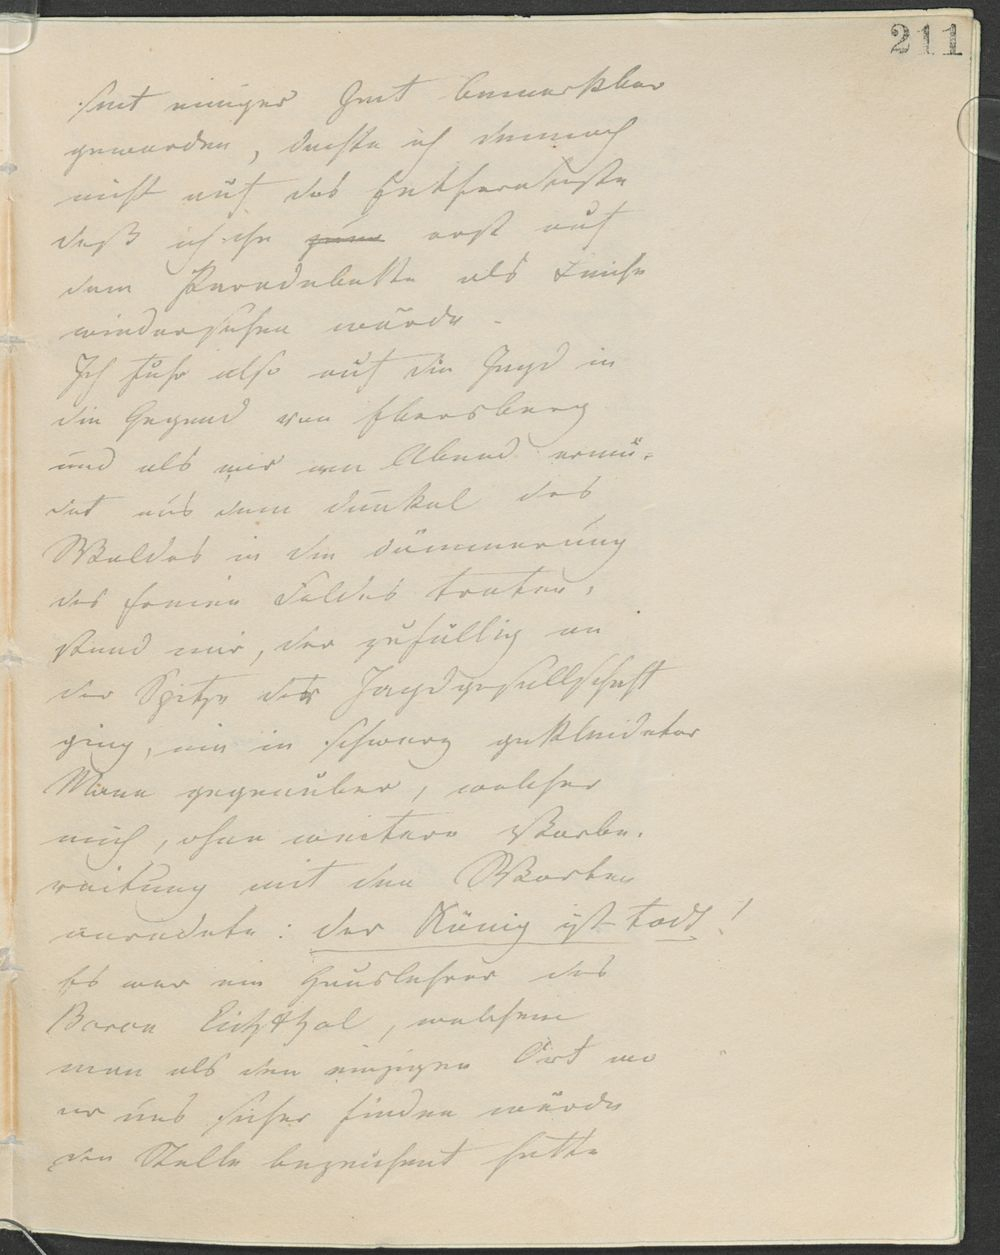 211
seit einiger Zeit bemerkbar
geworden, dachte ich dennoch
nicht auf das Entfernteste
daß ich ihn erst auf
dem Paradebette als Leiche
wiedersehen würde.
Ich fuhr also auf die Jagd in
die Gegend von Ebersberg
und als wir am Abend ermü-
det aus dem dunkel des
Waldes in die dämmerung
des freien Feldes traten,
stand mir, der zufällig an
der Spitze der Jagdgesellschaft
ging, ein in schwarz gekleideter
Mann gegenüber, welcher
mich, ohne weitere Vorbe-
reitung mit den Worten
anredete: der König ist todt!
Es war ein Hauslehrer des
Baron Eichthal, welchem
man als den einzigen Ort wo
er uns sicher finden würde
die Stelle bezeichnet hatte